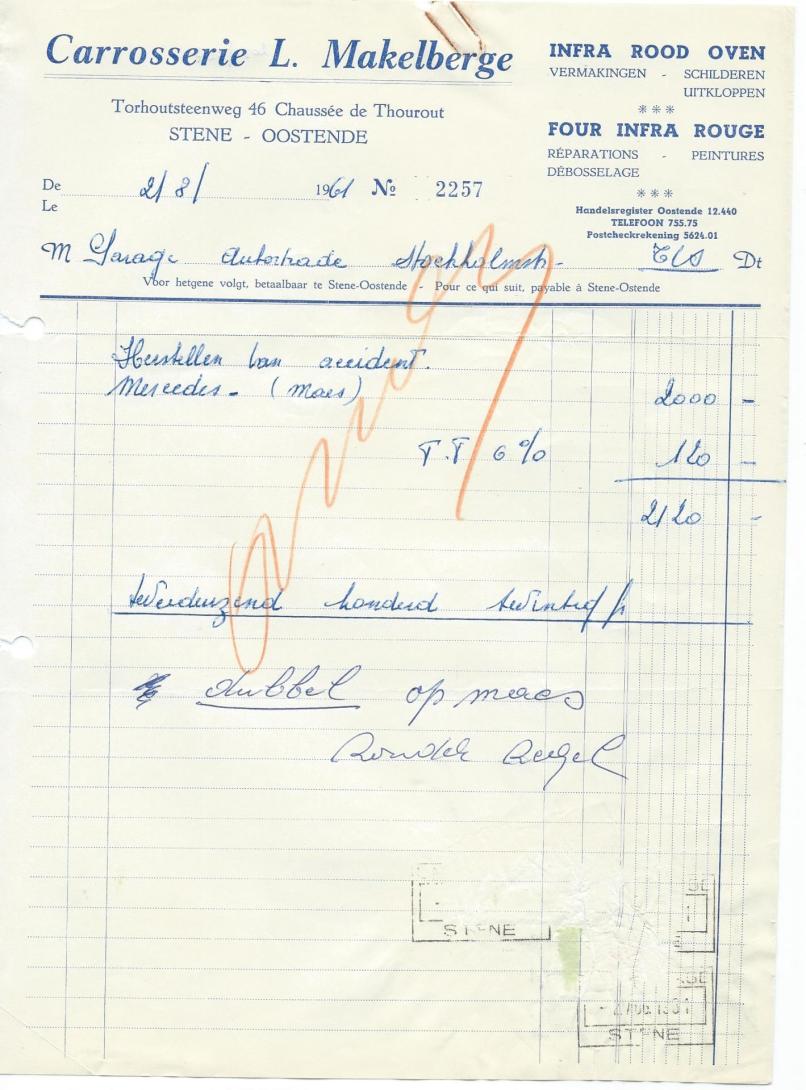 Carrosserie L. Makelberge
Torhoutsteenweg 46 Chaussée de Thourout
STENE - OOSTENDE
INFRA ROOD OVEN
VERMAKINGEN - SCHILDEREN
UITKLOPPEN
***
FOUR INFRA ROUGE
RÉPARATIONS - PEINTURES
DÉBOSSELAGE
***
Handelsregister Oostende 12.440
TELEFOON 755.75
Postcheckrekening 5624.01
De
Le
2/8/ 1961 No 2257
M Garage Autotrade Stockholmstr- Dt
Voor hetgene volgt, betaalbaar te Stene-Oostende - Pour ce qui suit, payable à Stene-Ostende
Herstellen van accident.
Mercedes - (maes) 2000 -
T.T 6 % 120 -
2120 -
tweeduizend honderd twintig fr
dubbel op maes
STENE
STENE